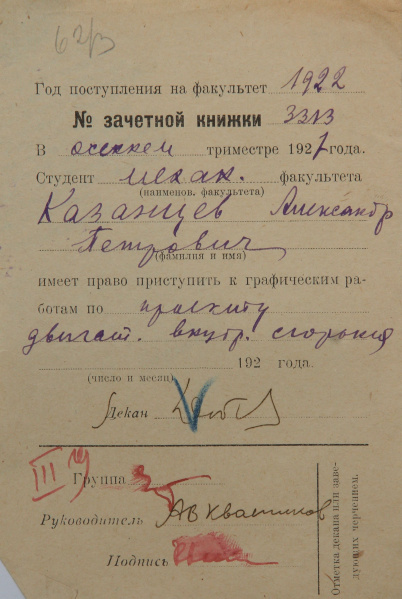 62/3
Год поступления на факультет 1922
№ зачетной книжки 3313
В осеннем триместре 1927 года.
Студент механ. факультета
(наименов. факультета)
Казанцев Александр
Петрович
(фамилия и имя)
имеет право приступить к графическим ра-
ботам по проекту
двигат. внутр. сгорания
192 года.
(число и месяц)
Декан
III
Группа
Руководитель АВ Квасников
Подпись
Отметка декана или заве-
дующих черчением.